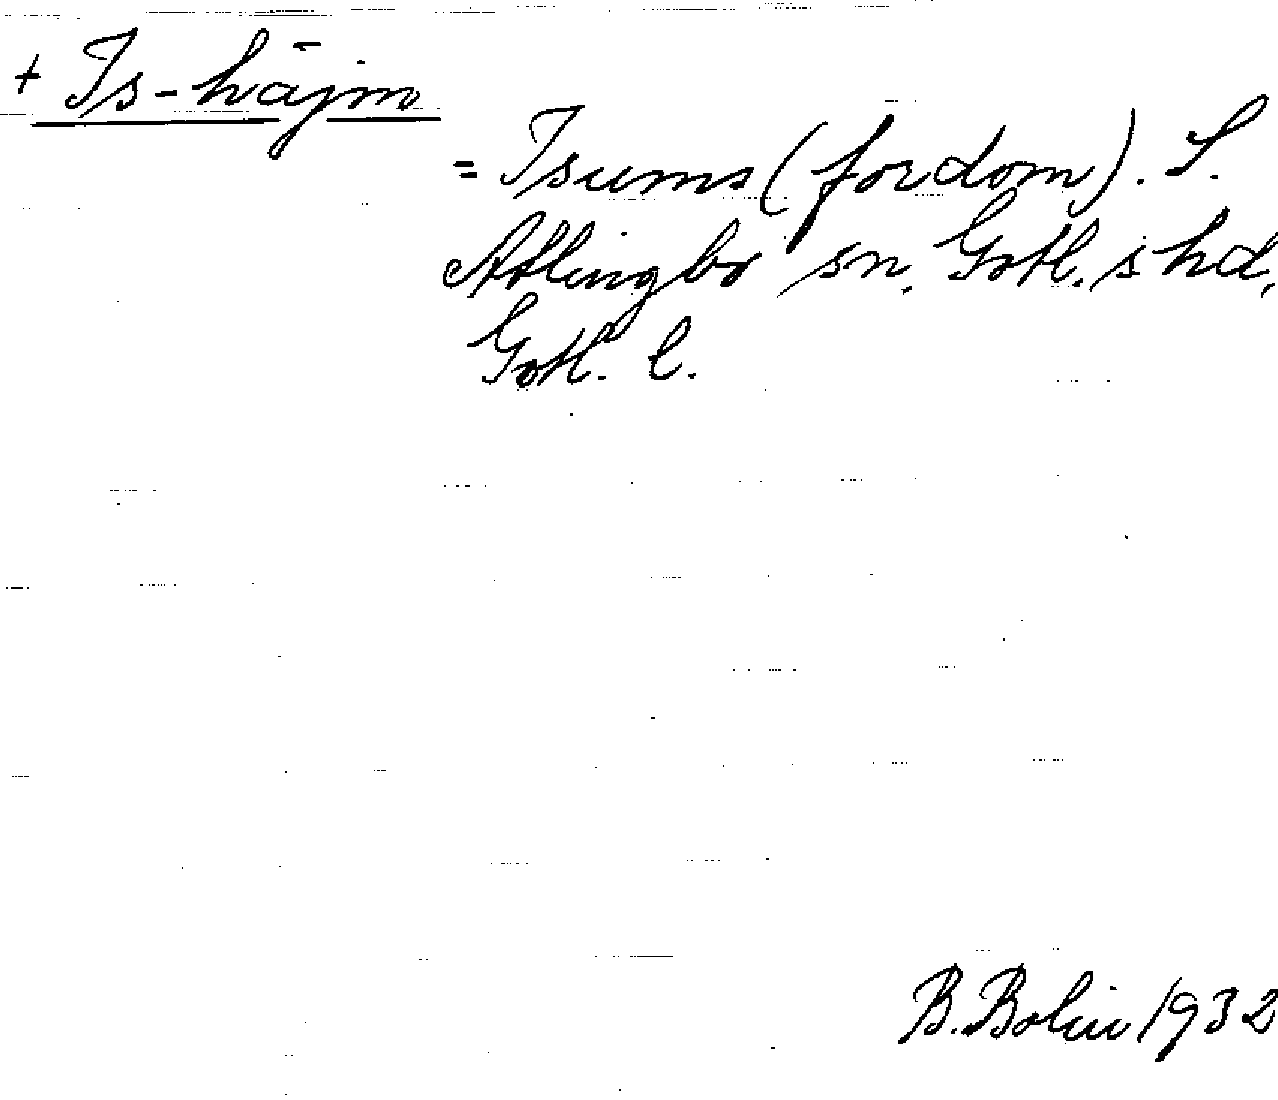 + Is-hājm
= Isums (fordom). S.
Atlingbo sn. Gotl. s hd,
Gotl. l.
B. Bolin 1932